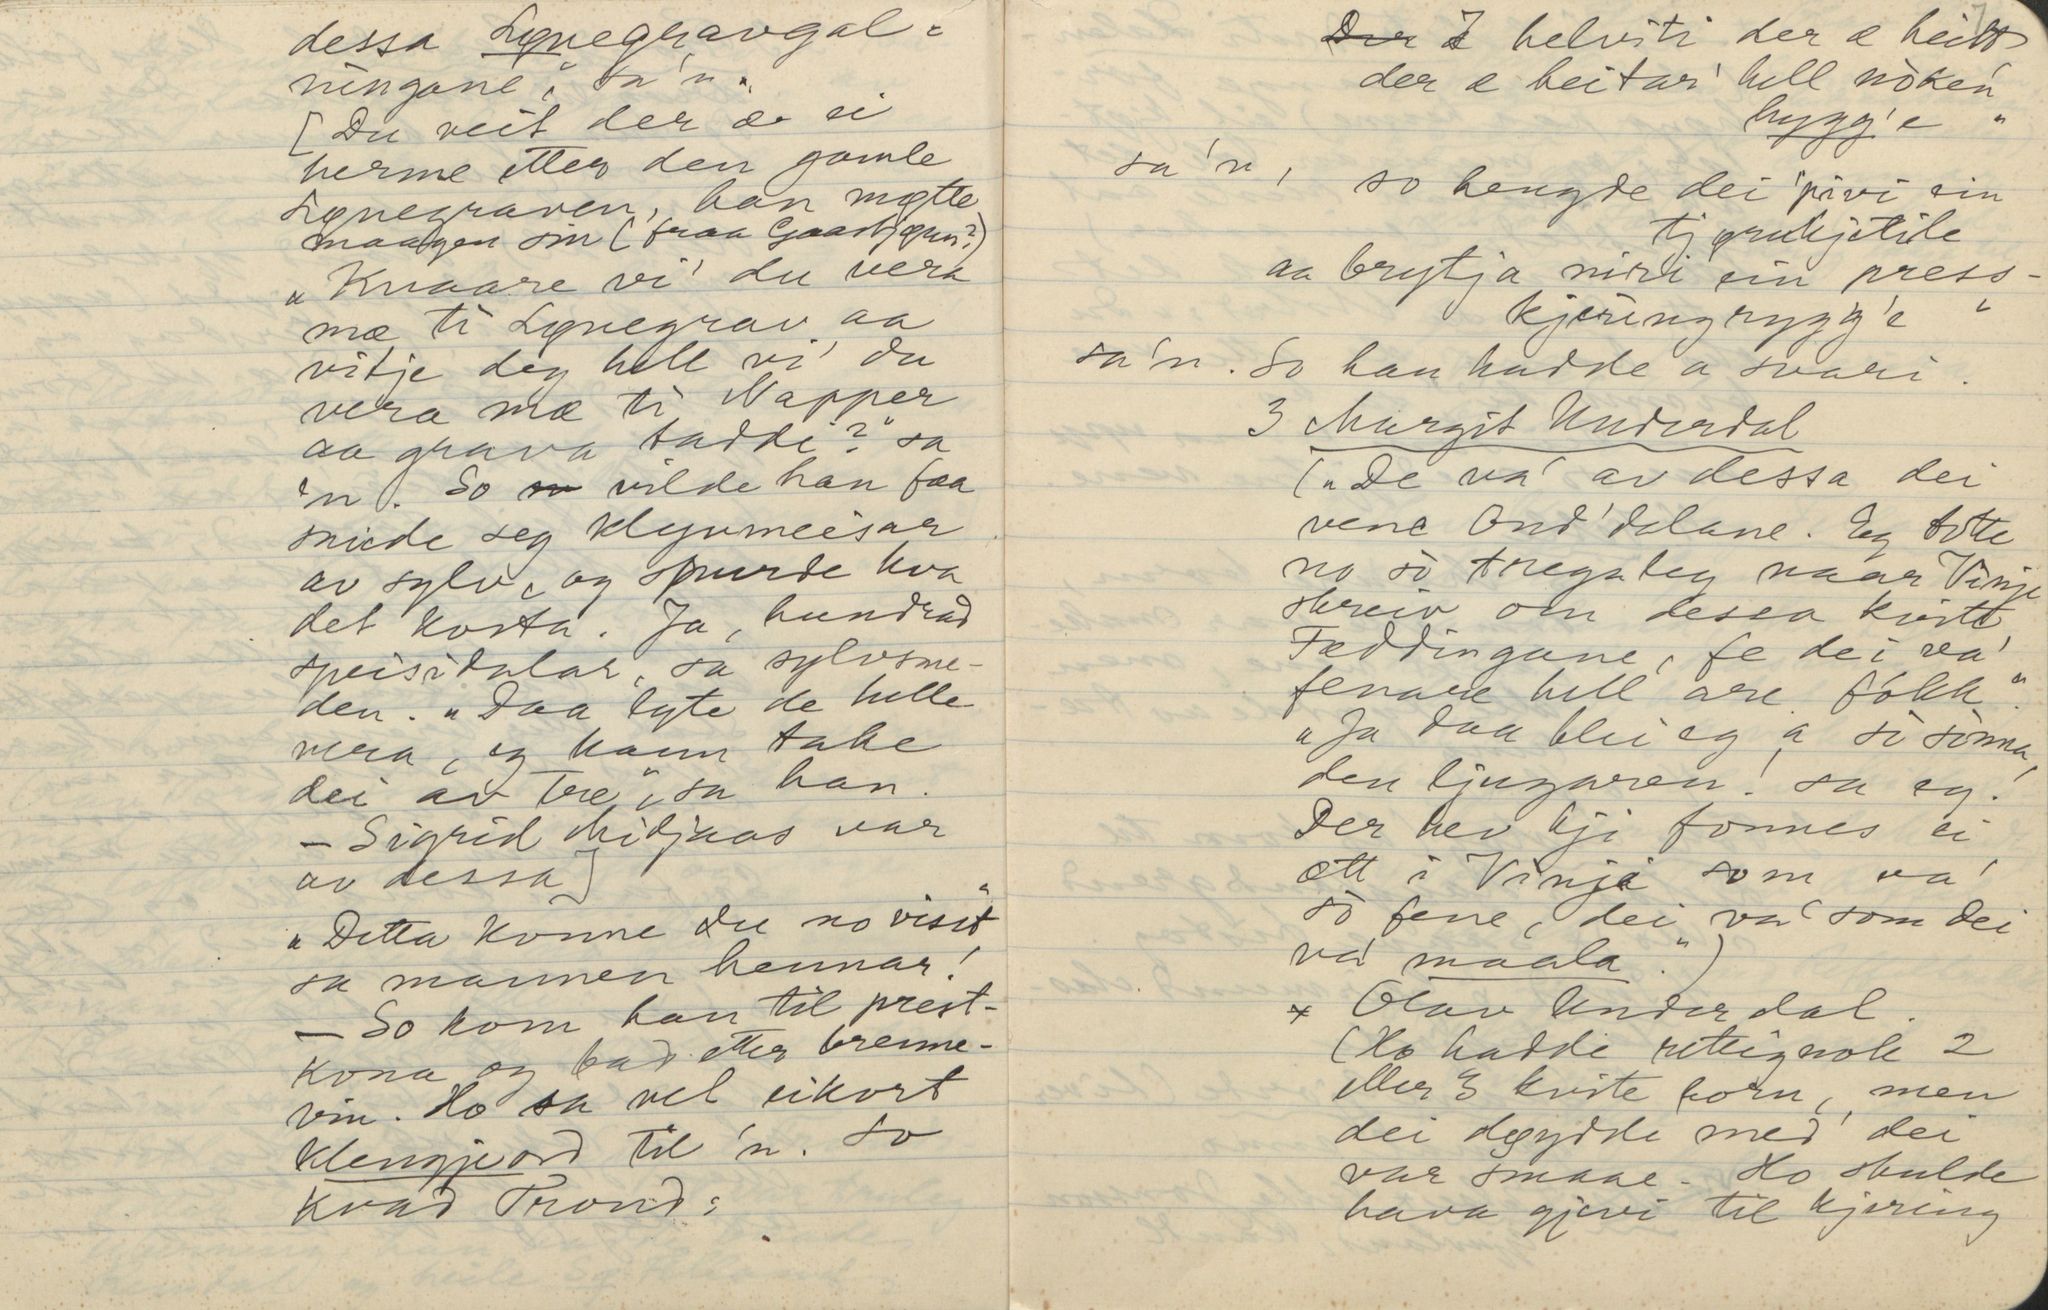 dessa Lønegravgal-
ningane", sa 'n".
[Du veit der æ ei
herme etter den gamle
Lønegraven, han møtte
maagen sin (fraa
"Kvaare vi' du vera
mæ ti Lønegrav aa
vitje deg hell vi' du
vera mæ ti Napper
aa grava taddi?" sa
'n. So vilde han faa
smide seg klyvmeisar
av sylv, og spurde kva
det kosta. Ja, hundrad
speisidalar, sa sylvsme-
den. "Daa lyte de helle
vera, eg kann take
dei av tre", sa han.
- Sigrid Midjaas var
av dessa]
"Detta konne du no visst"
sa mannen hennar!
- So kom han til prest-
kona og bad etter brenne-
vin. Ho sa vel eikort
klengjeord til 'n. So
kvad Trond:
Der I helviti der æ heitt
der æ heitar' hell noken
hygg'e "
sa'n, so hengde dei pivi ein
tjørukjitile
aa brytja niri ein press-
kjeringrygg'e "
sa'n. So han hadde a svari.
3 Margit Underdal
("De va' av dessa dei
vene Ond'dalane. Eg totte
no so tregaleg naar Vinje
skreiv om dessa kvite
Fæddingane, fe dei va'
fenare hell are folkk."
"Ja daa blei eg a so sinna,
den ljugaren! sa eg!
Der hev kji fonnes ei
ætt i Vinje som va'
so fene, dei va' som dei
va' maala.")
x Olav Underdal.
(Ho hadde retteignok 2
eller 3 kvite born, men
dei døydde med dei
var smaae. Ho skulde
hava gjevi til kjering